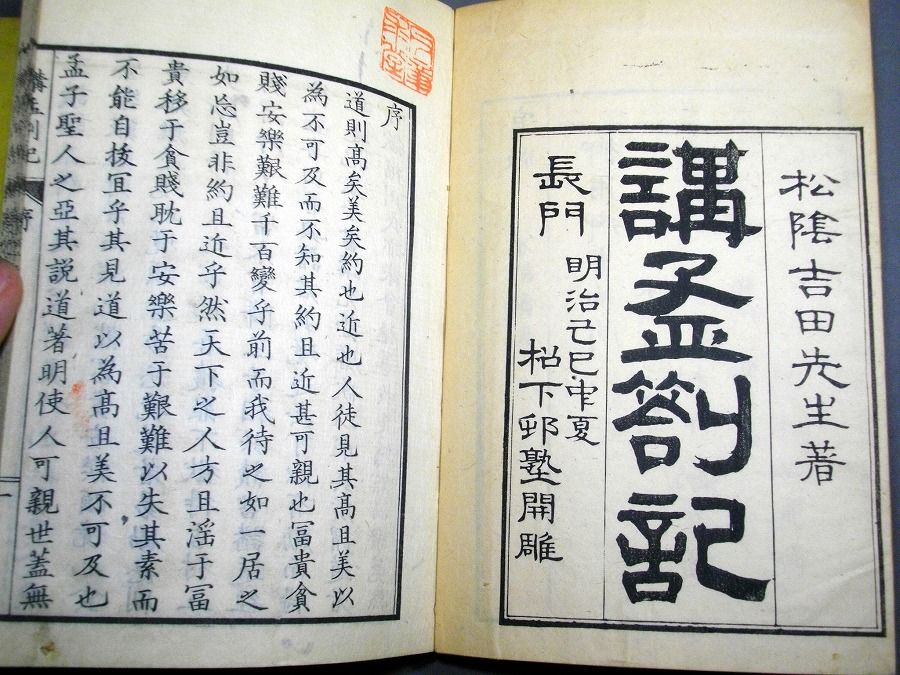 松陰吉田先生著
講孟劄記
長門
明治己巳中夏
松下邨塾開雕
序
道則髙矣美矣約也近也人徒見其髙且美以
為不可及而不知其約且近甚可親也冨貴貧
賤安樂艱難千百變乎前而我待之如一居之
如忘豈非約且近乎然天下之人方且淫于冨
貴移于貧賤耽于安樂苦于艱難以失其素而
不能自拔冝乎其見道以為髙且美不可及也
孟子聖人之亞其説道著明使人可親世蓋無
講孟劄記
序
一